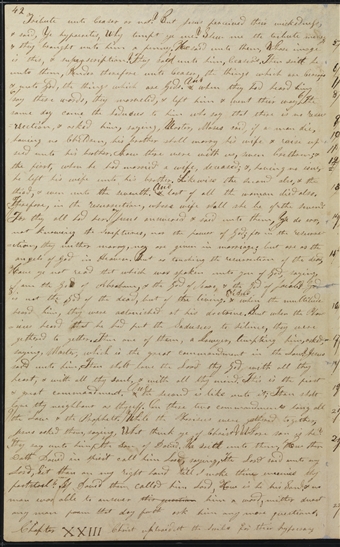 42
Tribute unto Ceasar or not? But Jesus perceived their wickedness,
& said, Ye hypocrites, Why tempt ye me? Shew me the tribute money
& they brought unto him a penny, He said unto them, Whose image
is this, & superscription? They said unto him, Ceasars. Then saith he
unto them, Render therefore unto Ceasar, the things which are Ceasars
& unto God, the things which are Gods. & when they had heard him
say these words, they marveled, & left him & went their way. The
same day came the Saducees to him who say that there is no resur-
rection, & asked him, saying, Master, Moses said, if a man die,
having no children, his brother shall marry his wife & raise up
seed unto his brother. Now there were with us, seven brethren, &
the first, when he had married a wife, deceased, & having no issue
he left his wife unto his brother. Likewise the second also, & the
third, & even unto the seventh, & last of all the woman died also,
Therefore, in the resurrection, whose wife shall she be of the seven?
for they all had her. Jesus answered & said unto them, Ye do err,
not knowing the Scriptures, nor the power of God, for in the resurrec-
tion, they neither marry, nor are given in marriage; but are as the
angels of God in Heaven. But as touching the resurrection of the dead,
Have ye not read that which was spoken unto you of God, saying,
I am the God of Abraham, & the God of Isaac, & the God of Jacob? God
is not the God of the dead, but of the living, & when the multitude
heard him, they were astonished at his doctrine. But when the Phar-
isees heard that he had put the Saducees to silence, they were
gathered together, then one of them, a Lawyer, tempting him, asked
saying, Master, which is the great commandment in the Law? Jesus
said unto him, Thou shalt love the Lord thy God with all thy
heart, & with all thy soul, & with all thy mind. This is the first
& great commandment, & the second is like unto it; Thou shalt
love thy neighbour as thyself, On these two commandments hang all
the Law & the Prophets. While the Pharisees were gathered together,
Jesus asked them, saying, What think ye of Christ? Whose son is he?
They say unto him, the Son of David. He saith unto them, How then
doth David in spirit call him Lord, saying, the Lord said unto my
Lord, Sit thou on my right hand till I make thine enemies thy
footstool? If David then called him Lord, How is he his Son? & no
man was able to answer him a word, neither durst
any man from that day forth ask him any more questions.
Chapter XXIII Christ